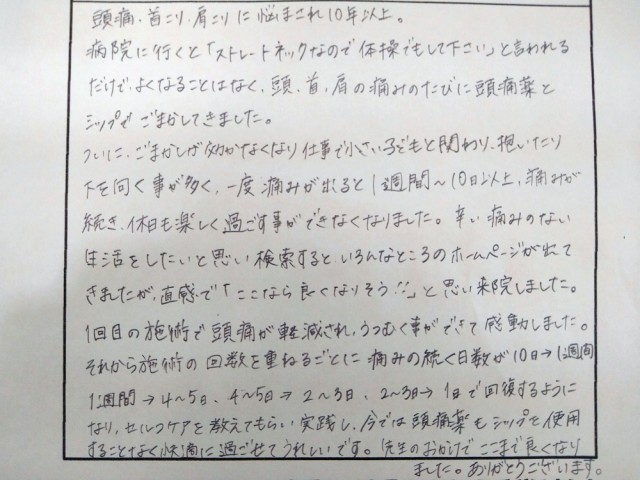 頭痛、首こり、肩こりに悩まされ10年以上。
病院に行くと「ストレートネックなので体操でもして下さい」と言われる
だけで、よくなることはなく、頭、首、肩の痛みのたびに頭痛薬と
シップでごまかしてきました。
ついに、ごまかしが効かなくなり仕事で小さい子どもと関わり、抱いたり
下を向く事が多く、一度痛みが出ると1週間〜10日以上、痛みが
続き、休日も楽しく過ごす事ができなくなりました。辛い痛みのない
生活をしたいと思い検索するといろんなところのホームページが出て
きましたが、直感で「ここなら良くなりそう!!」と思い来院しました。
1回目の施術で頭痛が軽減され、うつむく事ができて感動しました。
それから施術の回数を重ねるごとに痛みの続く日数が10日→1週間
1週間→4〜5日、4〜5日→2〜3日、2〜3日→1日で回復するように
なり、セルフケアを教えてもらい実践し、今では頭痛薬もシップを使用
することなく快適に過ごせてうれしいです。先生のおかげでここまで良くなり
ました。ありがとうございます。